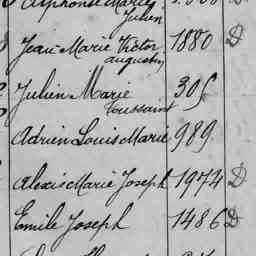 Alphonse Marie
Julien
Jean Marie Victor 1880 D
Augustin
Julien Marie 305
Toussaint
Adrien Louis Marie 989.
Alexis Marie Joseph 1974 D
Emile Joseph 1486 D